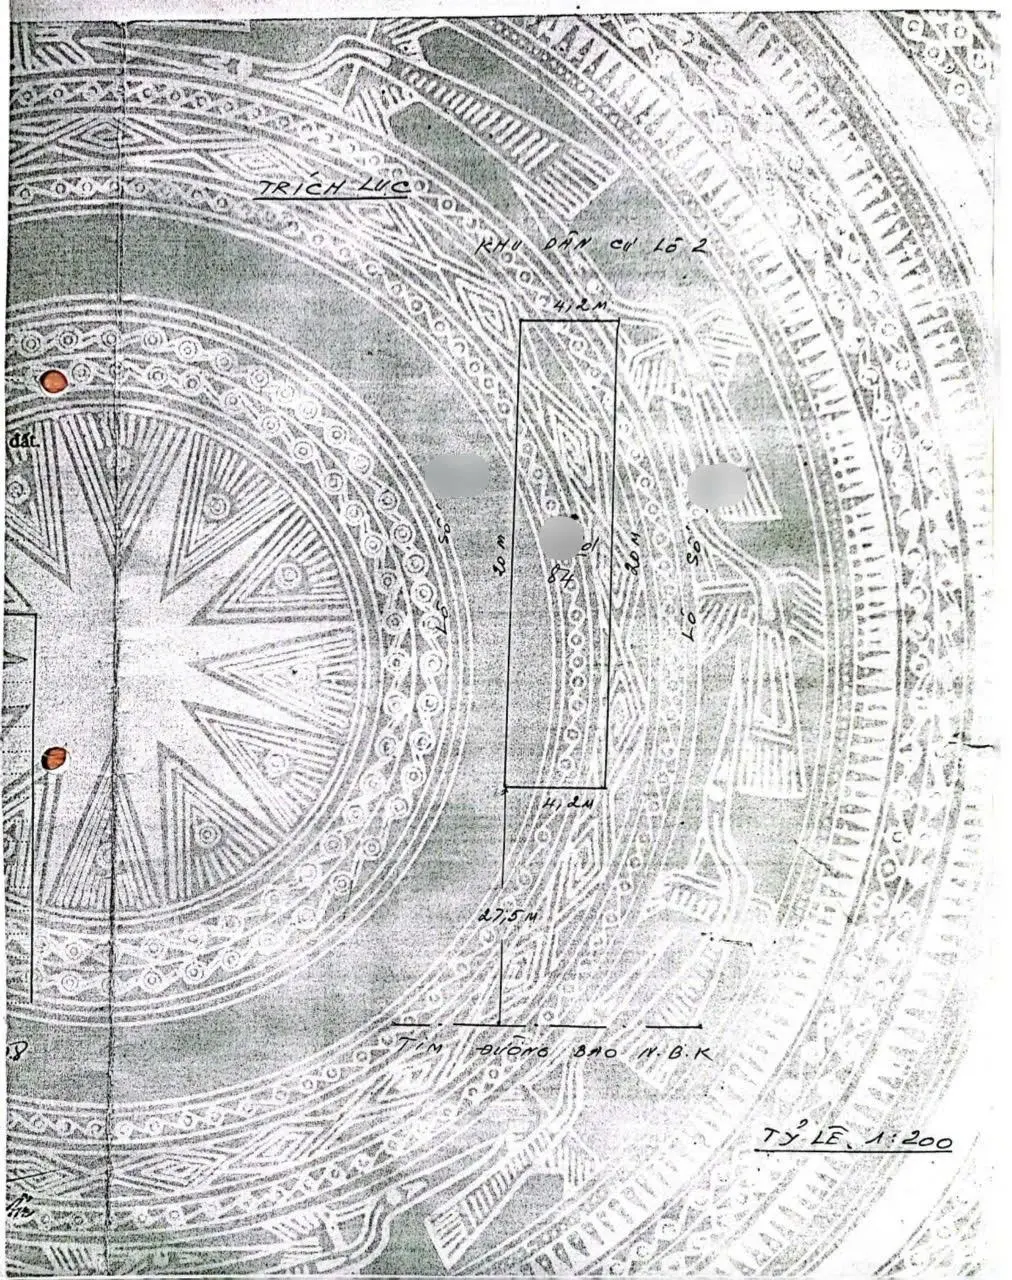 TRÍCH LUC
KHU DÂN CƯ LÔ 2
4,2M
đất.
LÔ SỐ
20 M
84
20 M
LÔ SỐ
4,2M
27,5M
TIM ĐƯỜNG BAO N.B.K
08
TỶ LÊ 1:200